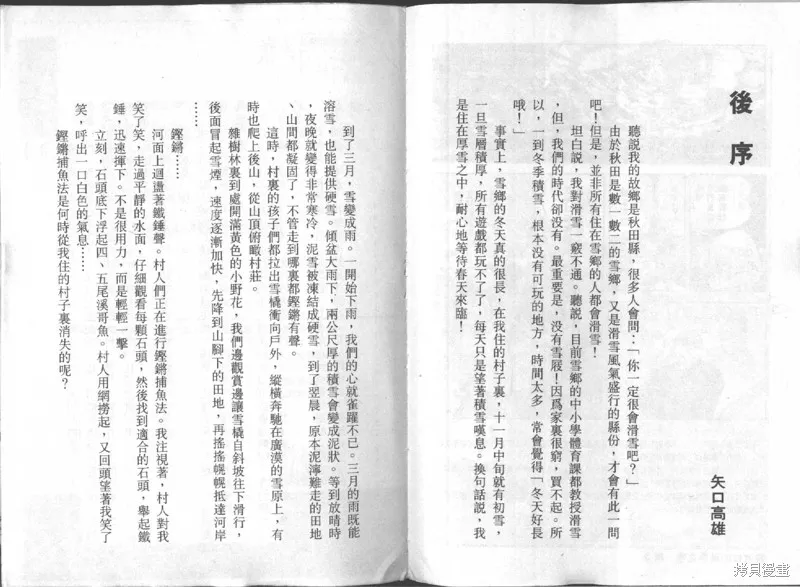 後序
矢口高雄
聽說我的故鄉是秋田縣，很多人會問：「你一定很會滑雪吧？」
由於秋田是數一數二的雪鄉，又是滑雪風氣盛行的縣份，才會有此一問
吧！但是，並非所有住在雪鄉的人都會滑雪！
坦白說，我對滑雪一竅不通。聽說，目前雪鄉的中小學體育課都教授滑雪
，但，我們的時代卻沒有。最重要是，沒有雪屐！因爲家裏很窮，買不起。所
以，一到冬季積雪，根本没有可玩的地方，時間太多，常會覺得「冬天好長
哦！」
事實上，雪鄉的冬天真的很長，在我住的村子裏，十一月中旬就有初雪，
一旦雪層積厚，所有遊戲都玩不了了，每天只是望著積雪嘆息。換句話說，我
是住在厚雪之中，耐心地等待春天來臨！
到了三月，雪變成雨。一開始下雨，我們的心就雀躍不已。三月的雨既能
溶雪，也能提供硬雪。傾盆大雨下，兩公尺厚的積雪會變成泥狀。等到放晴時
，夜晚就變得非常寒冷，泥雪被凍結成硬雪，到了翌晨，原本泥濘難走的田地
、山間都凝固了，不管走到哪裏都鏗鏘有聲。
這時，村裏的孩子們都拉出雪橇衝向戶外，縱橫奔馳在廣漠的雪原上，有
時也爬上後山，從山頂俯瞰村莊。
雜樹林裏到處開滿黃色的小野花，我們邊觀賞邊讓雪橇自斜坡往下滑行，
後面冒起雪煙，速度逐漸加快，先降到山腳下的田地，再搖搖幌幌抵達河岸
……
鏗鏘……
河面上迴盪著鐵錘聲。村人們正在進行鏗鏘捕魚法。我注視著，村人對我
笑了笑，走過平靜的水面，仔細觀看每顆石頭，然後找到適合的石頭，舉起鐵
錘，迅速揮下。不是很用力，而是輕輕一擊。
立刻，石頭底下浮起四、五尾溪哥魚。村人用網撈起，又回頭望著我笑了
笑，呼出一口白色的氣息……
鏗鏘捕魚法是何時從我住的村子裏消失的呢？
拷貝漫畫
www.copymanga.com